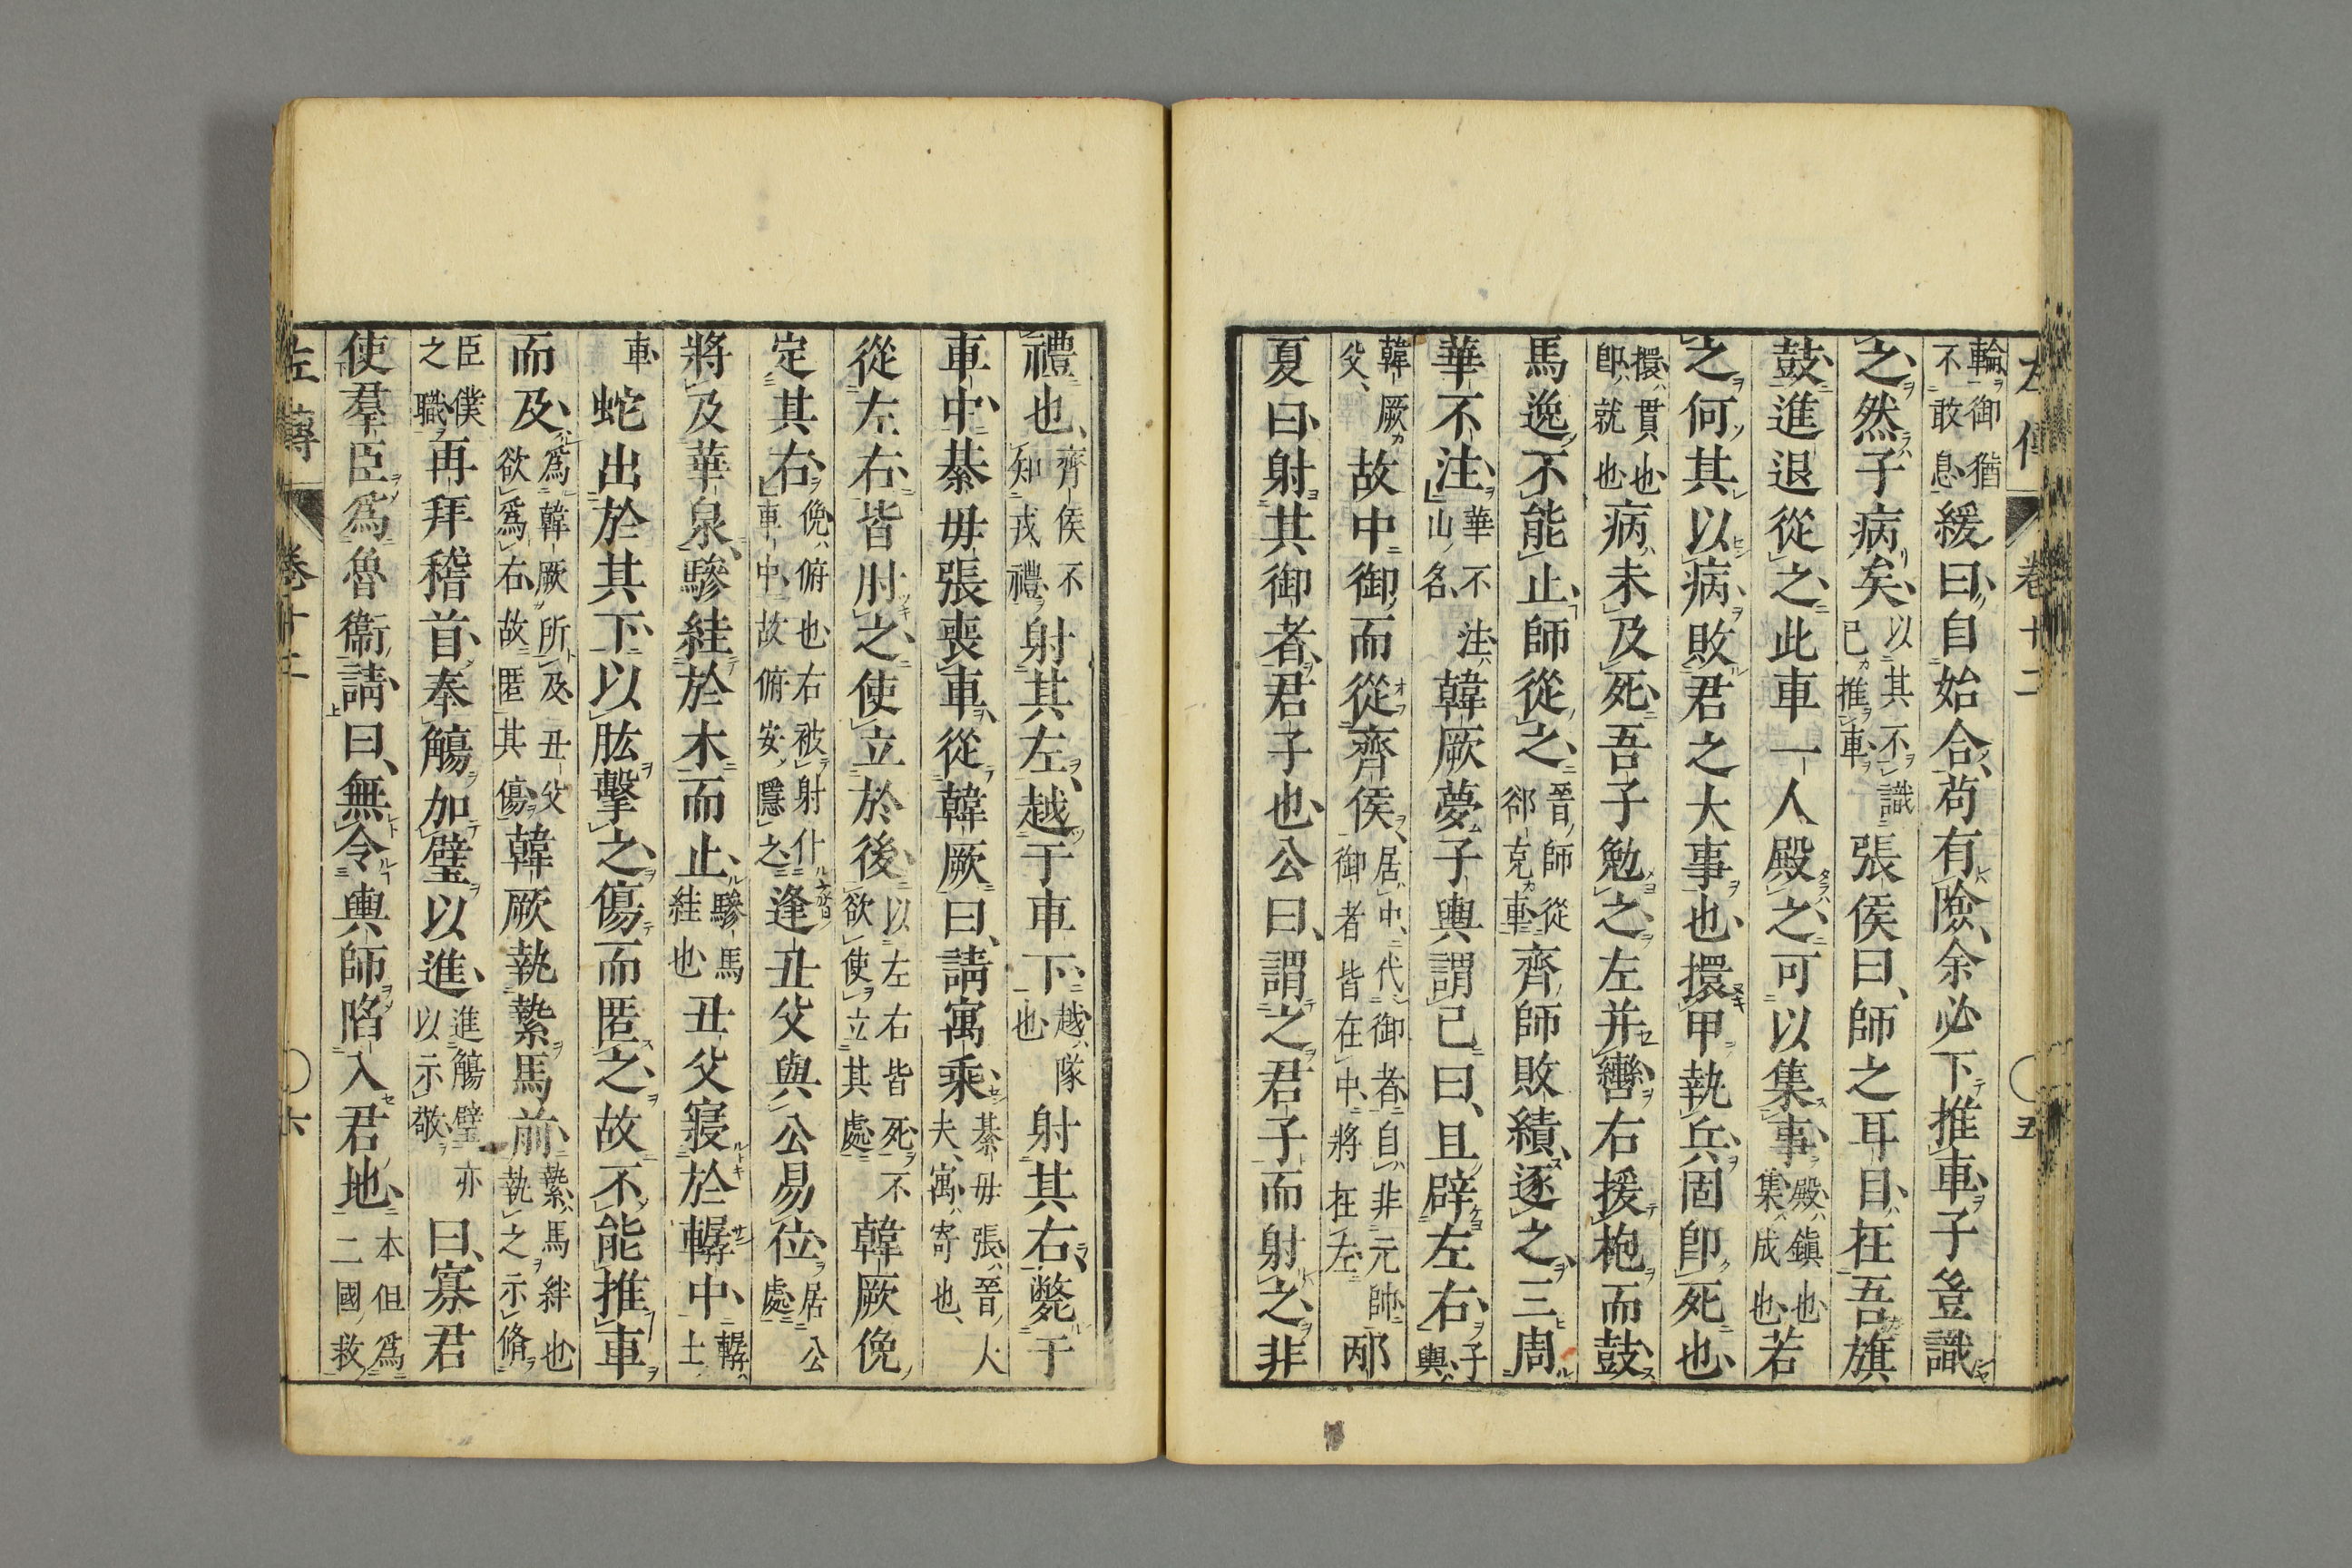 左傳 卷十二 五
輪御猶不敢息緩曰自始合苟有險余必下推車子豈識
之然子病矣以其不識己推車張侯曰師之耳目在吾旗
鼓進退從之此車一人殿之可以集事殿鎭也集成也若
之何其以病敗君之大事也擐甲執兵固卽死也
擐貫也卽就也病未及死吾子勉之左并轡右援枹而鼓
馬逸不能止師從之晉師從郤克車齊師敗績逐之三周
華不注華不注山名韓厥夢子輿謂己曰且辟左右子輿
韓厥父故中御而從齊侯居中代御者自非元帥御者皆在中將在左邴
夏曰射其御者君子也公曰謂之君子而射之非
禮也齊侯不知戎禮射其左越于車下越隊也射其右斃于
車中綦毋張喪車從韓厥曰請寓乘綦毋張晉人夫寓寄也
從左右皆肘之使立於後以左右皆死不欲使立其處韓厥俛
定其右俛俯也右被射仆車中故俯安隱之逢丑父與公易位居公處
將及華泉驂絓於木而止驂馬絓也丑父寢於轏中轏士
車蛇出於其下以肱擊之傷而匿之故不能推車
而及爲韓厥所及丑父欲爲右故匿其傷韓厥執縶馬前縶馬絆也執之示脩
臣僕之職再拜稽首奉觴加璧以進進觴璧亦以示敬曰寡君
使羣臣爲魯衞請曰無令輿師陷入君地本但爲二國救
左傳 卷十二 六